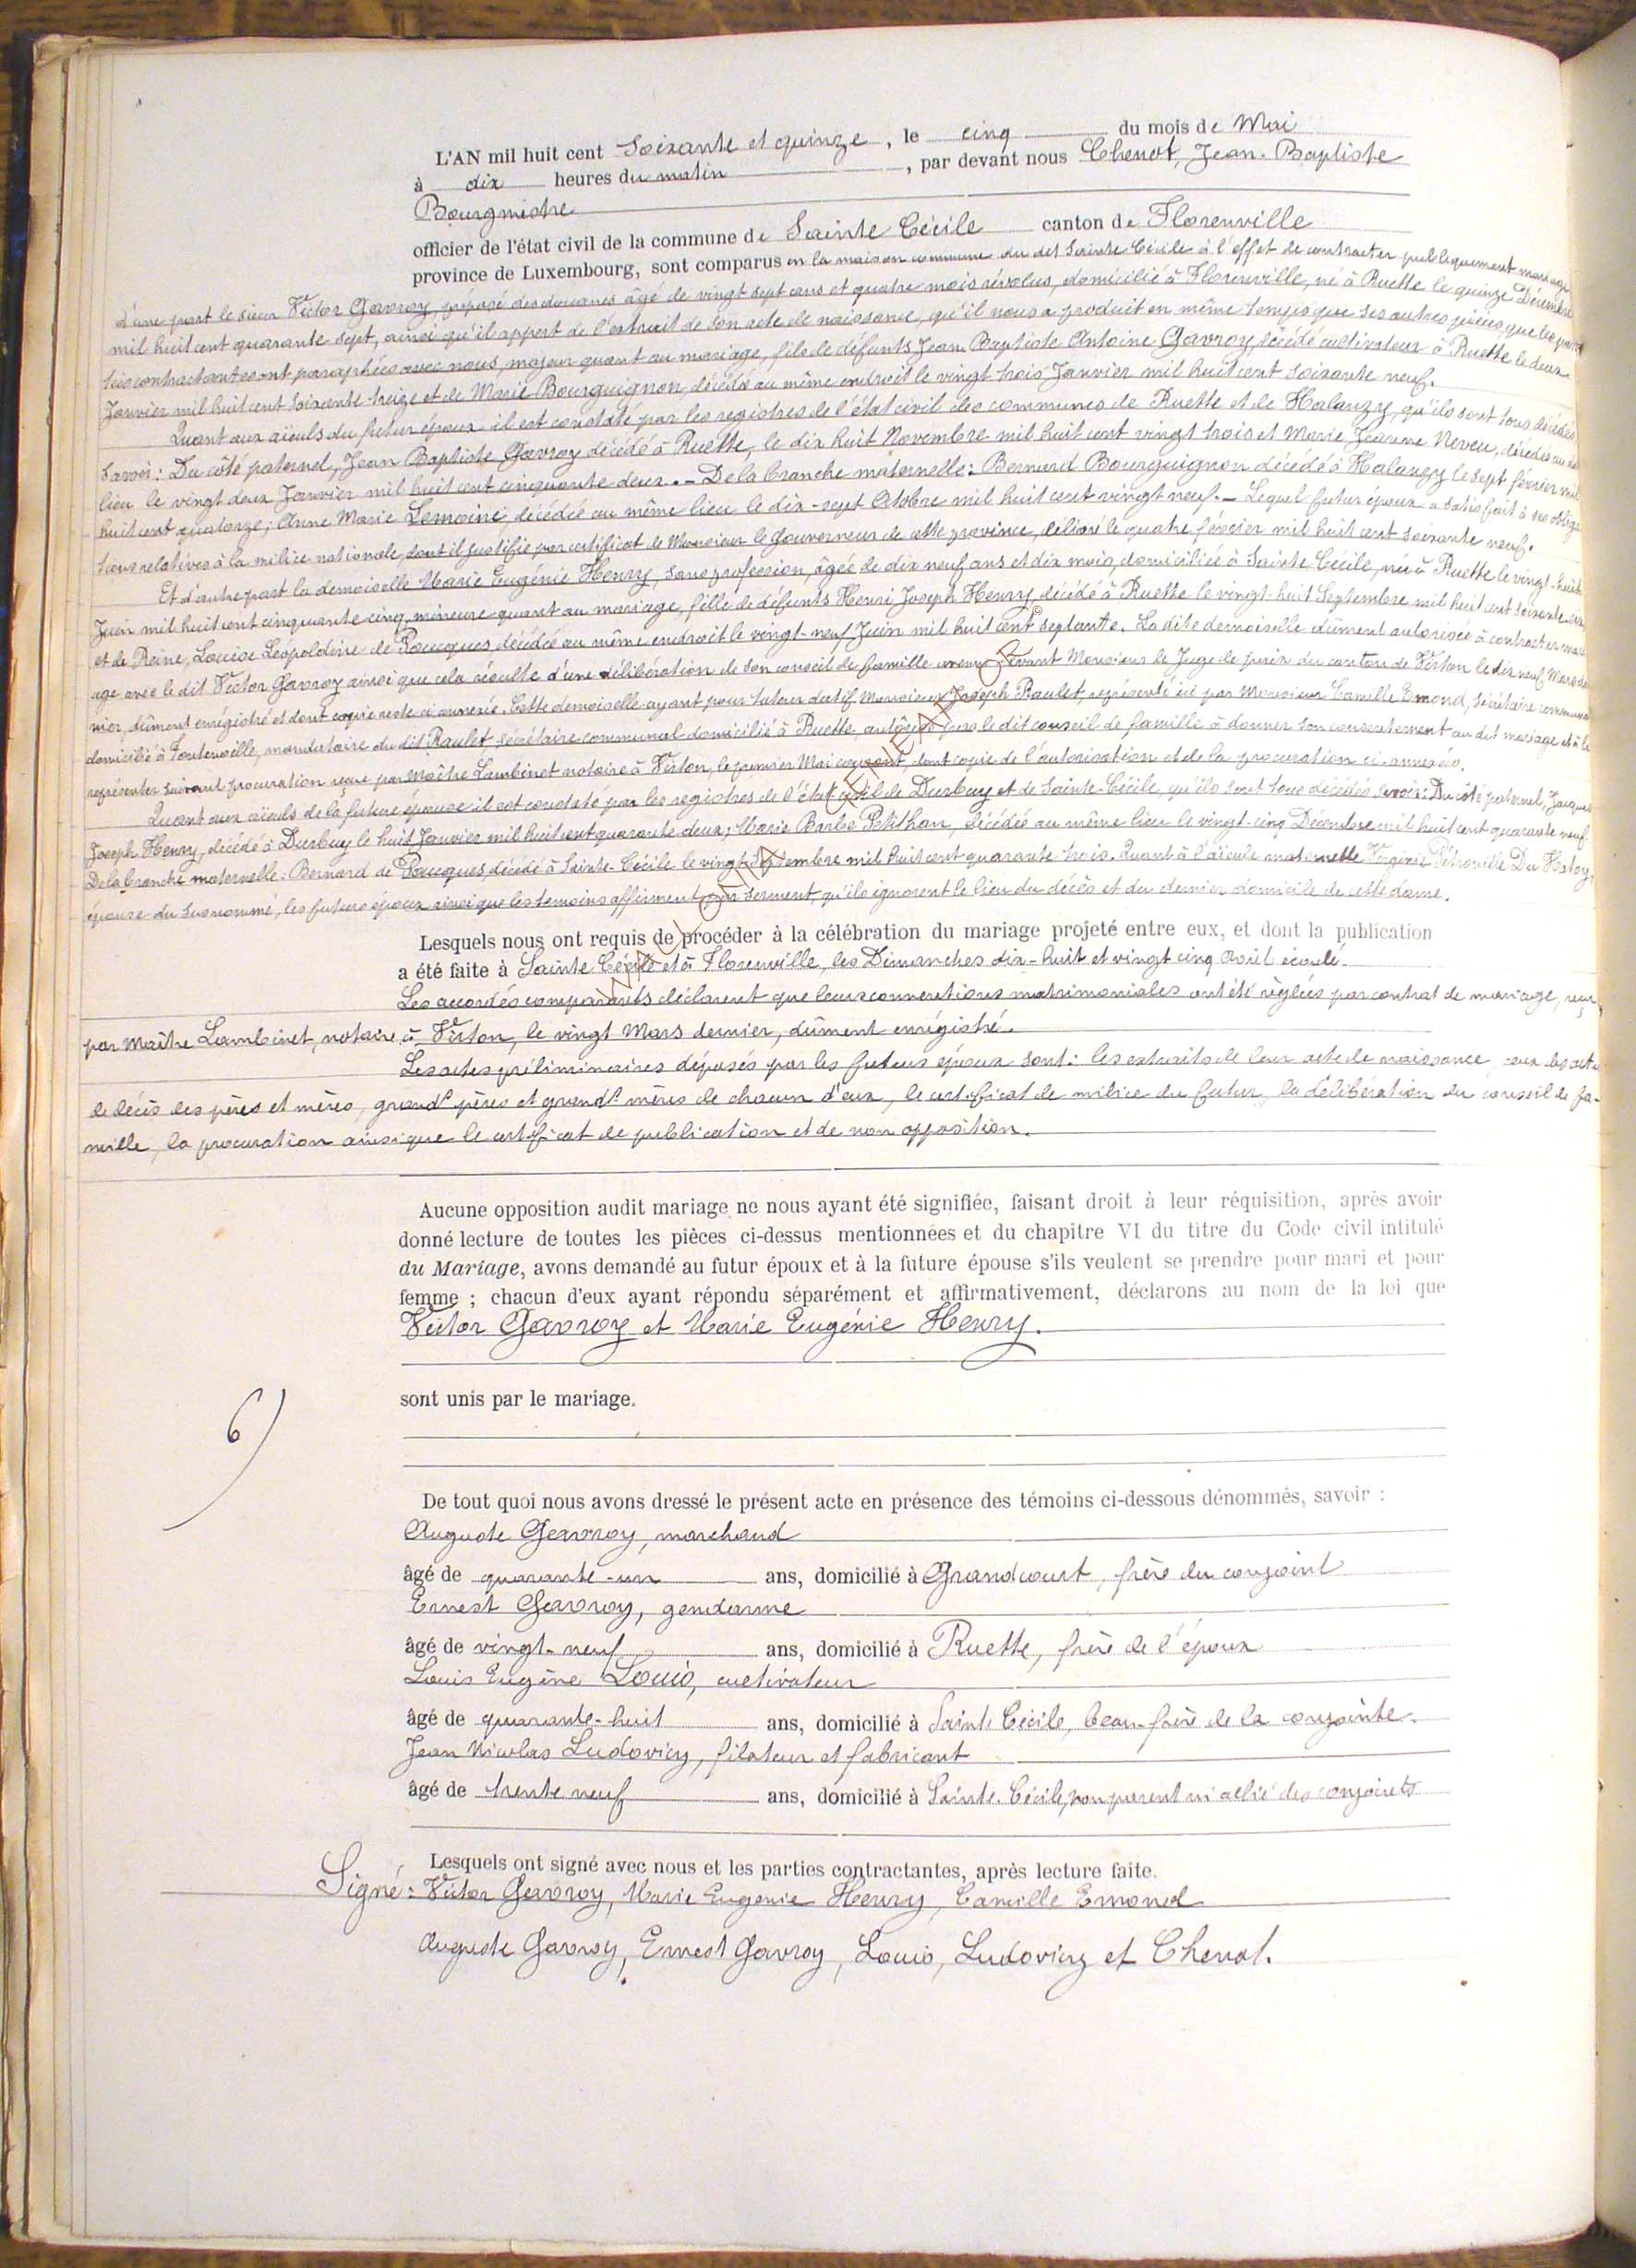 L'AN mil huit cent Soixante et quinze, le cinq du mois de Mai
à dix heures du matin, par devant nous Chenot, Jean-Baptiste
Bourgmestre
officier de l'état civil de la commune de Sainte Cécile canton de Florenville
province de Luxembourg, sont comparus en la maison commune du dit Sainte Cécile à l'effet de contracter publiquement mariage
d'une part le sieur Victor Gavroy, préposé des douanes âgé de vingt sept ans et quatre mois révolus, domicilié à Florenville, né à Ruette le quinze Décembre
mil huit cent quarante sept, ainsi qu'il appert de l'extrait de son acte de naissance, qu'il nous a produit en même temps que ses autres pièces que les par
ties contractantes ont paraphées avec nous, majeur quant au mariage, fils de défunts Jean Baptiste Antoine Gavroy, décédé cultivateur à Ruette le deux
Janvier mil huit cent soixante treize et de Marie Bourguignon, décédée au même endroit le vingt trois Janvier mil huit cent soixante neuf.
Quant aux aïeuls du futur époux il est constaté par les registres de l'état civil des communes de Ruette et de Halanzy, qu'ils sont tous décédés
Savoir: Du côté paternel, Jean Baptiste Gavroy décédé à Ruette, le dix huit Novembre mil huit cent vingt trois et Marie Jeanne Neveu, décédée au dit
lieu le vingt deux Janvier mil huit cent cinquante deux. - De la branche maternelle: Bernard Bourguignon décédé à Halanzy le sept février mil
huit cent quatorze; Anne Marie Lemoine décédée au même lieu le dix-sept Octobre mil huit cent vingt neuf. - Lequel futur époux a satisfait à ses obliga
tions relatives à la milice nationale, dont il justifie par certificat de Monsieur le Gouverneur de cette province, délivré le quatre février mil huit cent soixante neuf.
Et d'autre part la demoiselle Marie Eugénie Henry, sans profession, âgée de dix neuf ans et dix mois, domiciliée à Sainte Cécile, née à Ruette le vingt-huit
Juin mil huit cent cinquante cinq, mineure quant au mariage, fille de défunts Henri Joseph Henry décédé à Ruette le vingt-huit Septembre mil huit cent soixante-dix
et de Reine, Louise Léopoldine de Poucques, décédée au même endroit le vingt-neuf Juin mil huit cent septante. La dite demoiselle dûment autorisée à contracter mari
age avec le dit Victor Gavroy ainsi que cela résulte d'une délibération de son conseil de famille devant Monsieur le Juge de paix du canton de Virton le dix neuf Mars der
nier, dûment enrégistré et dont copie reste ci annexée. Cette demoiselle ayant pour tuteur datif Monsieur Joseph Raulet, représenté ici par Monsieur Camille Emond, Secrétaire communal
domicilié à Fontenoille, mandataire du dit Raulet secrétaire communal domicilié à Ruette, autorisé par le dit conseil de famille à donner son consentement au dit mariage et à le
représenter suivant procuration reçue par Maître Lambinet notaire à Virton, le premier Mai courant, dont copie de l'autorisation et de la procuration ci-annexées.
Quant aux aïeuls de la future épouse il est constaté par les registres de l'état civil de Durbuy et de Sainte-Cécile, qu'ils sont tous décédés savoir: Du côté paternel, Jacques
Joseph Henry, décédé à Durbuy le huit Janvier mil huit cent quarante deux; Marie Barbe Petithan, décédée au même lieu le vingt-cinq Décembre mil huit cent quarante neuf
De la branche maternelle: Bernard de Poucques, décédé à Sainte-Cécile le vingt Septembre mil huit cent quarante trois. Quant à l'aïeule maternelle Virginie Pétronille Du Hatoy,
épouse du susnommé, les futurs époux ainsi que les témoins affirment par serment, qu'ils ignorent le lieu du décès et du dernier domicile de cette dame.
Lesquels nous ont requis de procéder à la célébration du mariage projeté entre eux, et dont la publication
a été faite à Sainte Cécile et à Florenville, les Dimanches dix-huit et vingt cinq Avril écoulé.
Les accordés comparants déclarent que leurs conventions matrimoniales ont été réglées par contrat de mariage, reçu
par Maître Lambinet, notaire à Virton, le vingt Mars dernier, dûment enrégistré.
Les actes préliminaires déposés par les futurs époux sont: les extraits de leur acte de naissance, ceux des actes
de décès des pères et mères, grands pères et grands mères de chacun d'eux, le certificat de milice du futur, la délibération du conseil de fa-
mille, la procuration ainsi que le certificat de publication et de non opposition.
Aucune opposition audit mariage ne nous ayant été signifiée, faisant droit à leur réquisition, après avoir
donné lecture de toutes les pièces ci-dessus mentionnées et du chapitre VI du titre du Code civil intitulé
du Mariage, avons demandé au futur époux et à la future épouse s'ils veulent se prendre pour mari et pour
femme ; chacun d'eux ayant répondu séparément et affirmativement, déclarons au nom de la loi que
Victor Gavroy et Marie Eugénie Henry.
sont unis par le mariage.
6)
De tout quoi nous avons dressé le présent acte en présence des témoins ci-dessous dénommés, savoir :
Auguste Gavroy, marchand
âgé de quarante-un ans, domicilié à Grandcourt, frère du conjoint
Ernest Gavroy, gendarme
âgé de vingt-neuf ans, domicilié à Ruette, frère de l'époux
Louis Eugène Louis, cultivateur
âgé de quarante-huit ans, domicilié à Sainte Cécile, beau-frère de la conjointe.
Jean Nicolas Ludovicy, filateur et fabricant
âgé de trente neuf ans, domicilié à Sainte-Cécile, non parent ni allié des conjoints
Lesquels ont signé avec nous et les parties contractantes, après lecture faite.
Signé: Victor Gavroy, Marie Eugénie Henry, Camille Emond
Auguste Gavroy, Ernest Gavroy, Louis, Ludovicy et Chenot.